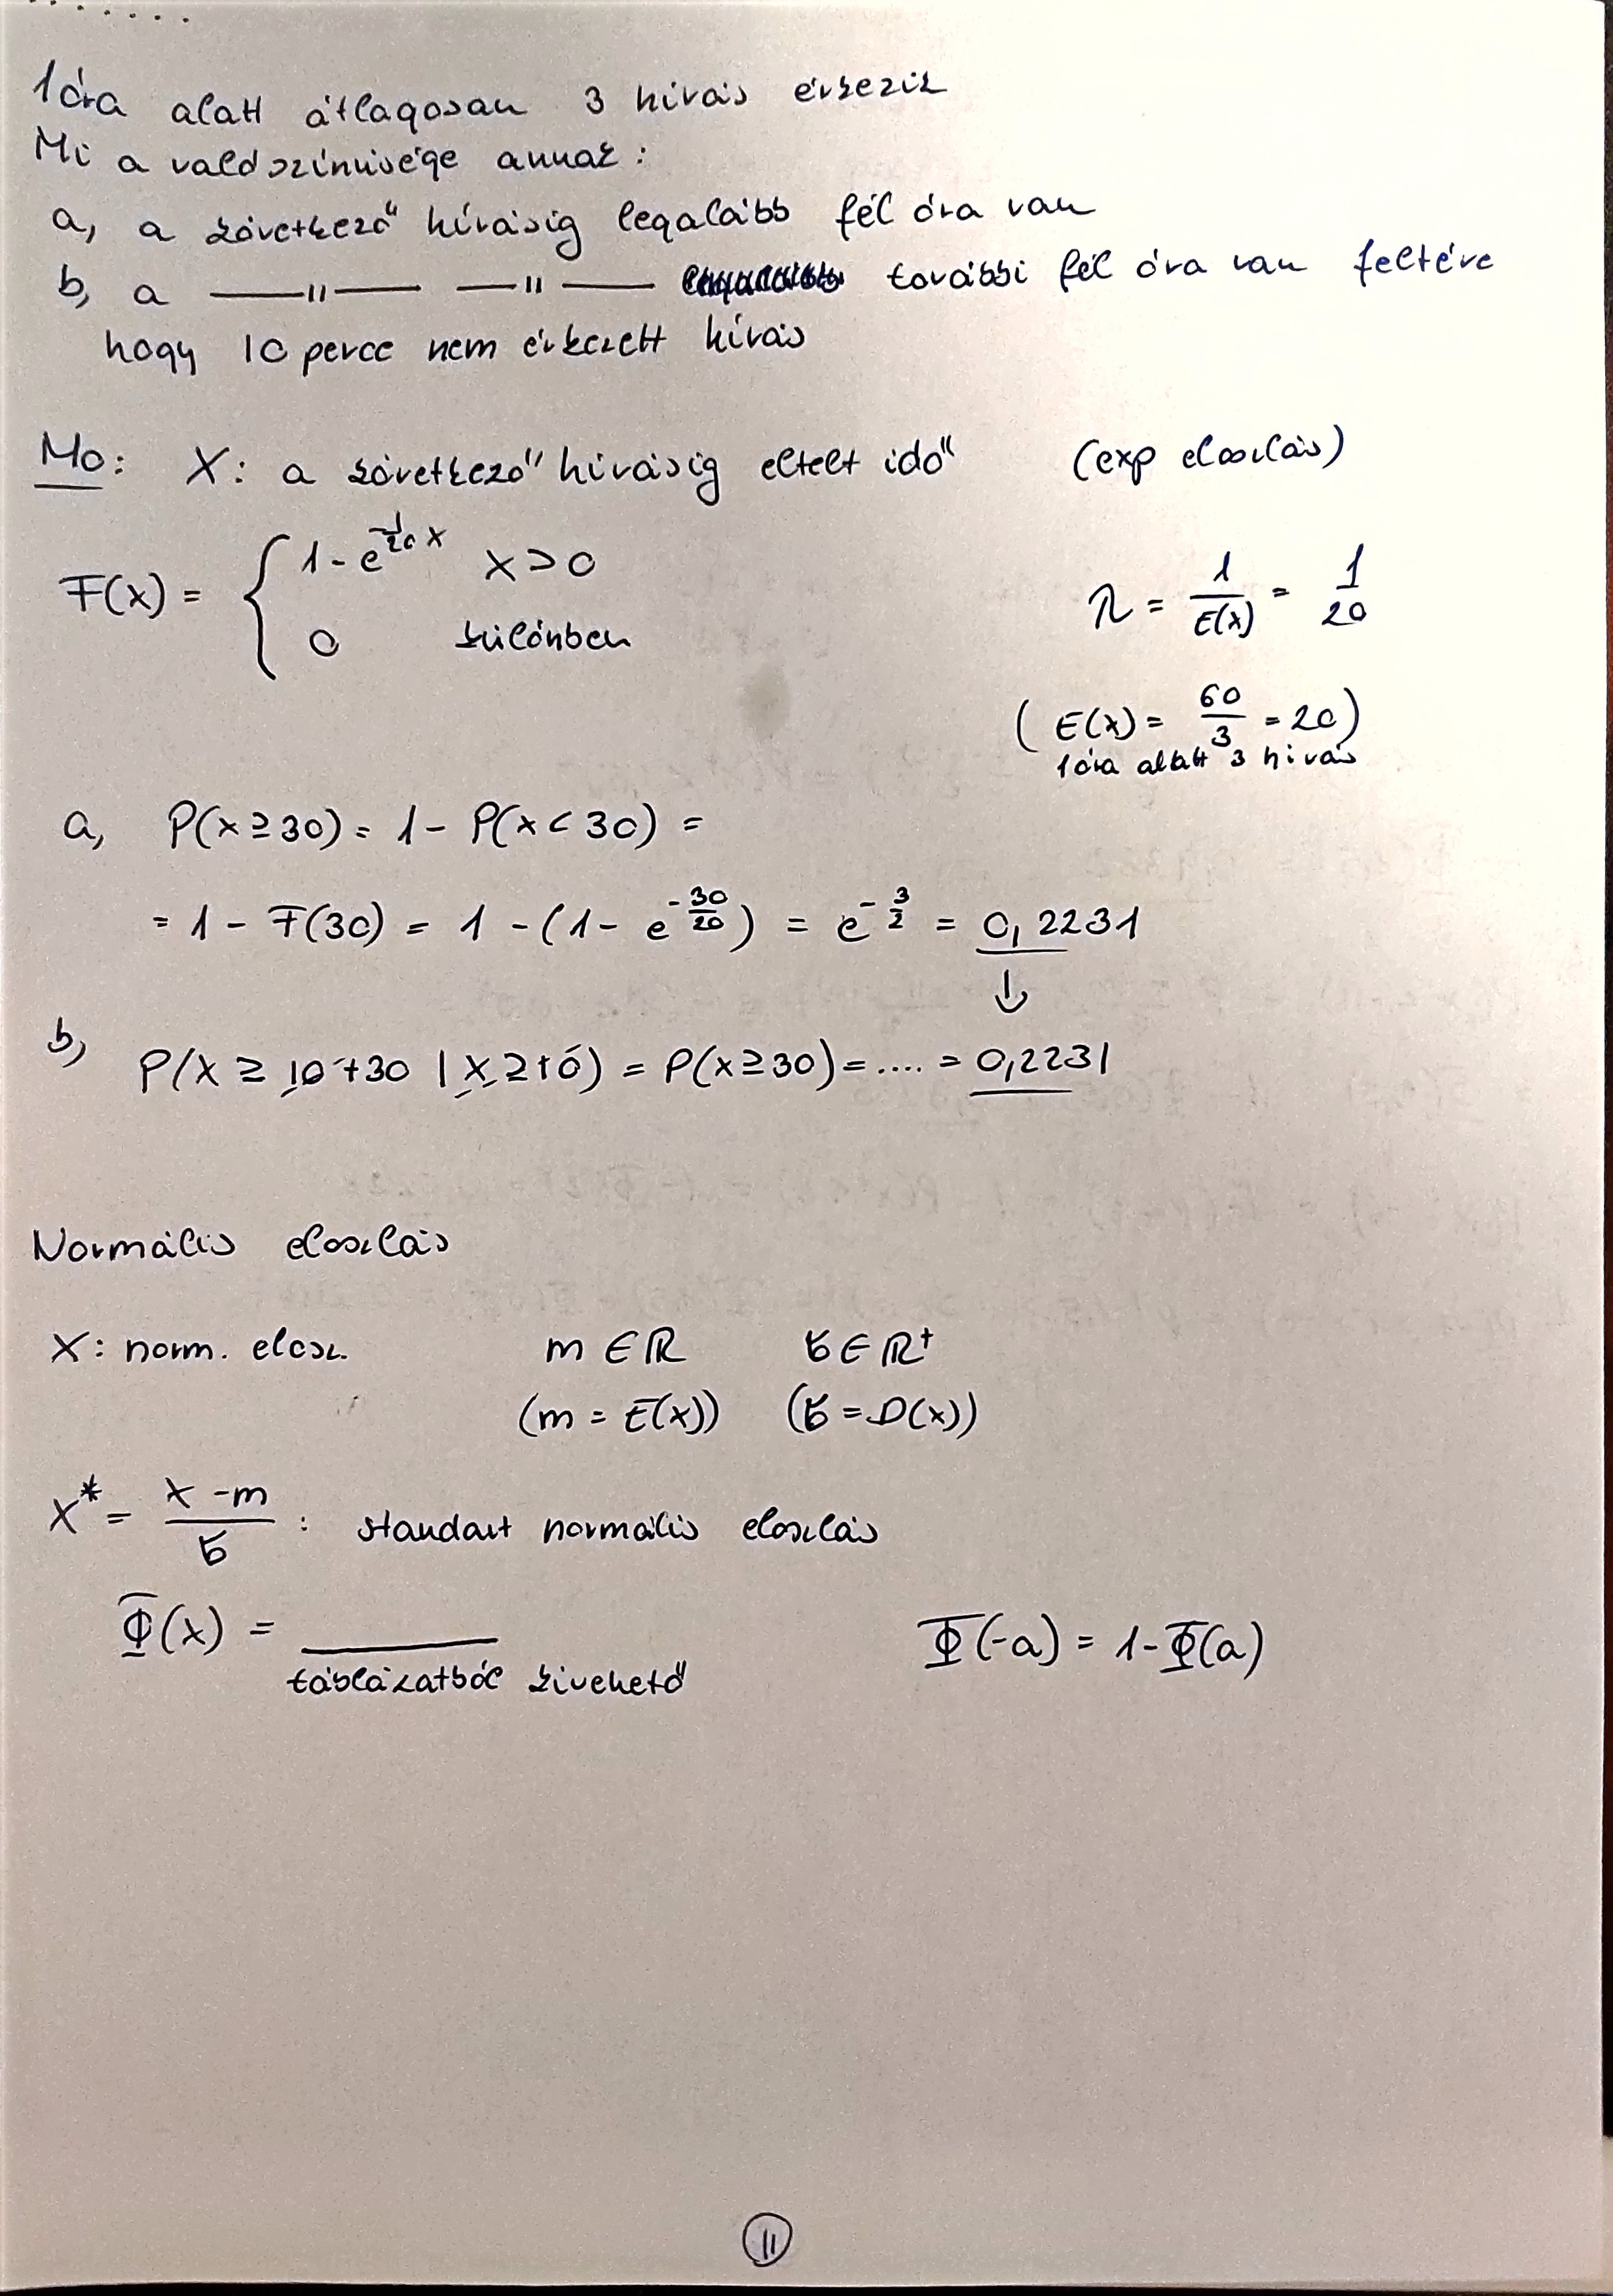 1 óra alatt átlagosan 3 hívás érkezik
Mi a valószínűsége annak:
a, a következő hívásig legalább fél óra van
b, a —〃— —〃— további fél óra van feltéve
hogy 10 perce nem érkezett hívás
Mo: X: a következő hívásig eltelt idő (exp eloszlás)
F(x) = { 1 - e^{-1/20 x} x > 0
0 különben
λ = 1/E(x) = 1/20
( E(x) = 60/3 = 20 )
1 óra alatt 3 hívás
a, P(x ≥ 30) = 1 - P(x < 30) =
= 1 - F(30) = 1 - (1 - e^{-30/20}) = e^{-3/2} = 0,2231
↓
b, P(X ≥ 10 + 30 | X ≥ 10) = P(x ≥ 30) = .... = 0,2231
Normális eloszlás
X: norm. elosz. m ∈ ℝ σ ∈ ℝ⁺
(m = E(x)) (σ = D(x))
X* = (x - m)/σ : standart normális eloszlás
Φ(x) = ______ Φ(-a) = 1 - Φ(a)
táblázatból kivehető
11